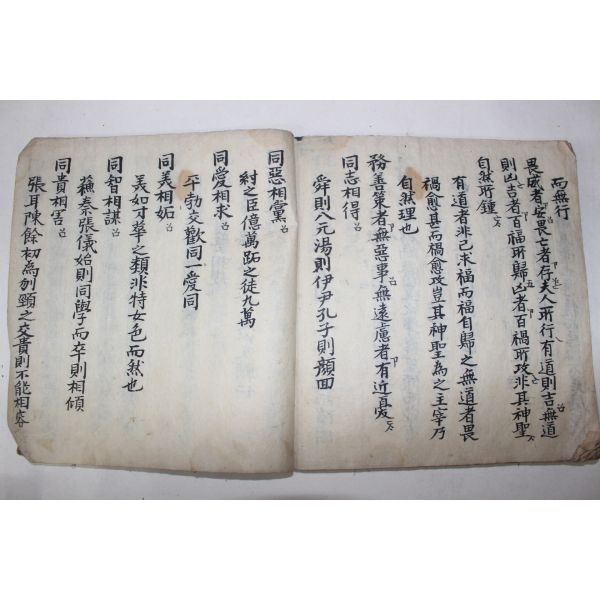 而無行
畏危者安畏亡者存夫人所行有道則吉無道
則凶吉者百福所歸凶者百禍所攻非其神聖
自然所鍾
有道者非己求福而福自歸之無道者畏
禍愈甚而禍愈攻豈其神聖為之主宰乃
自然理也
務善策者無惡事無遠慮者有近憂
同志相得
舜則八元湯則伊尹孔子則顏回
同惡相黨
紂之臣億萬跖之徒九萬
同愛相求
平勃交歡同一愛同
同美相妬
美如才華之類非特女色而然也
同智相謀
蘓秦張儀始則同學而卒則相傾
同貴相害
張耳陳餘初為刎頸之交貴則不能相容